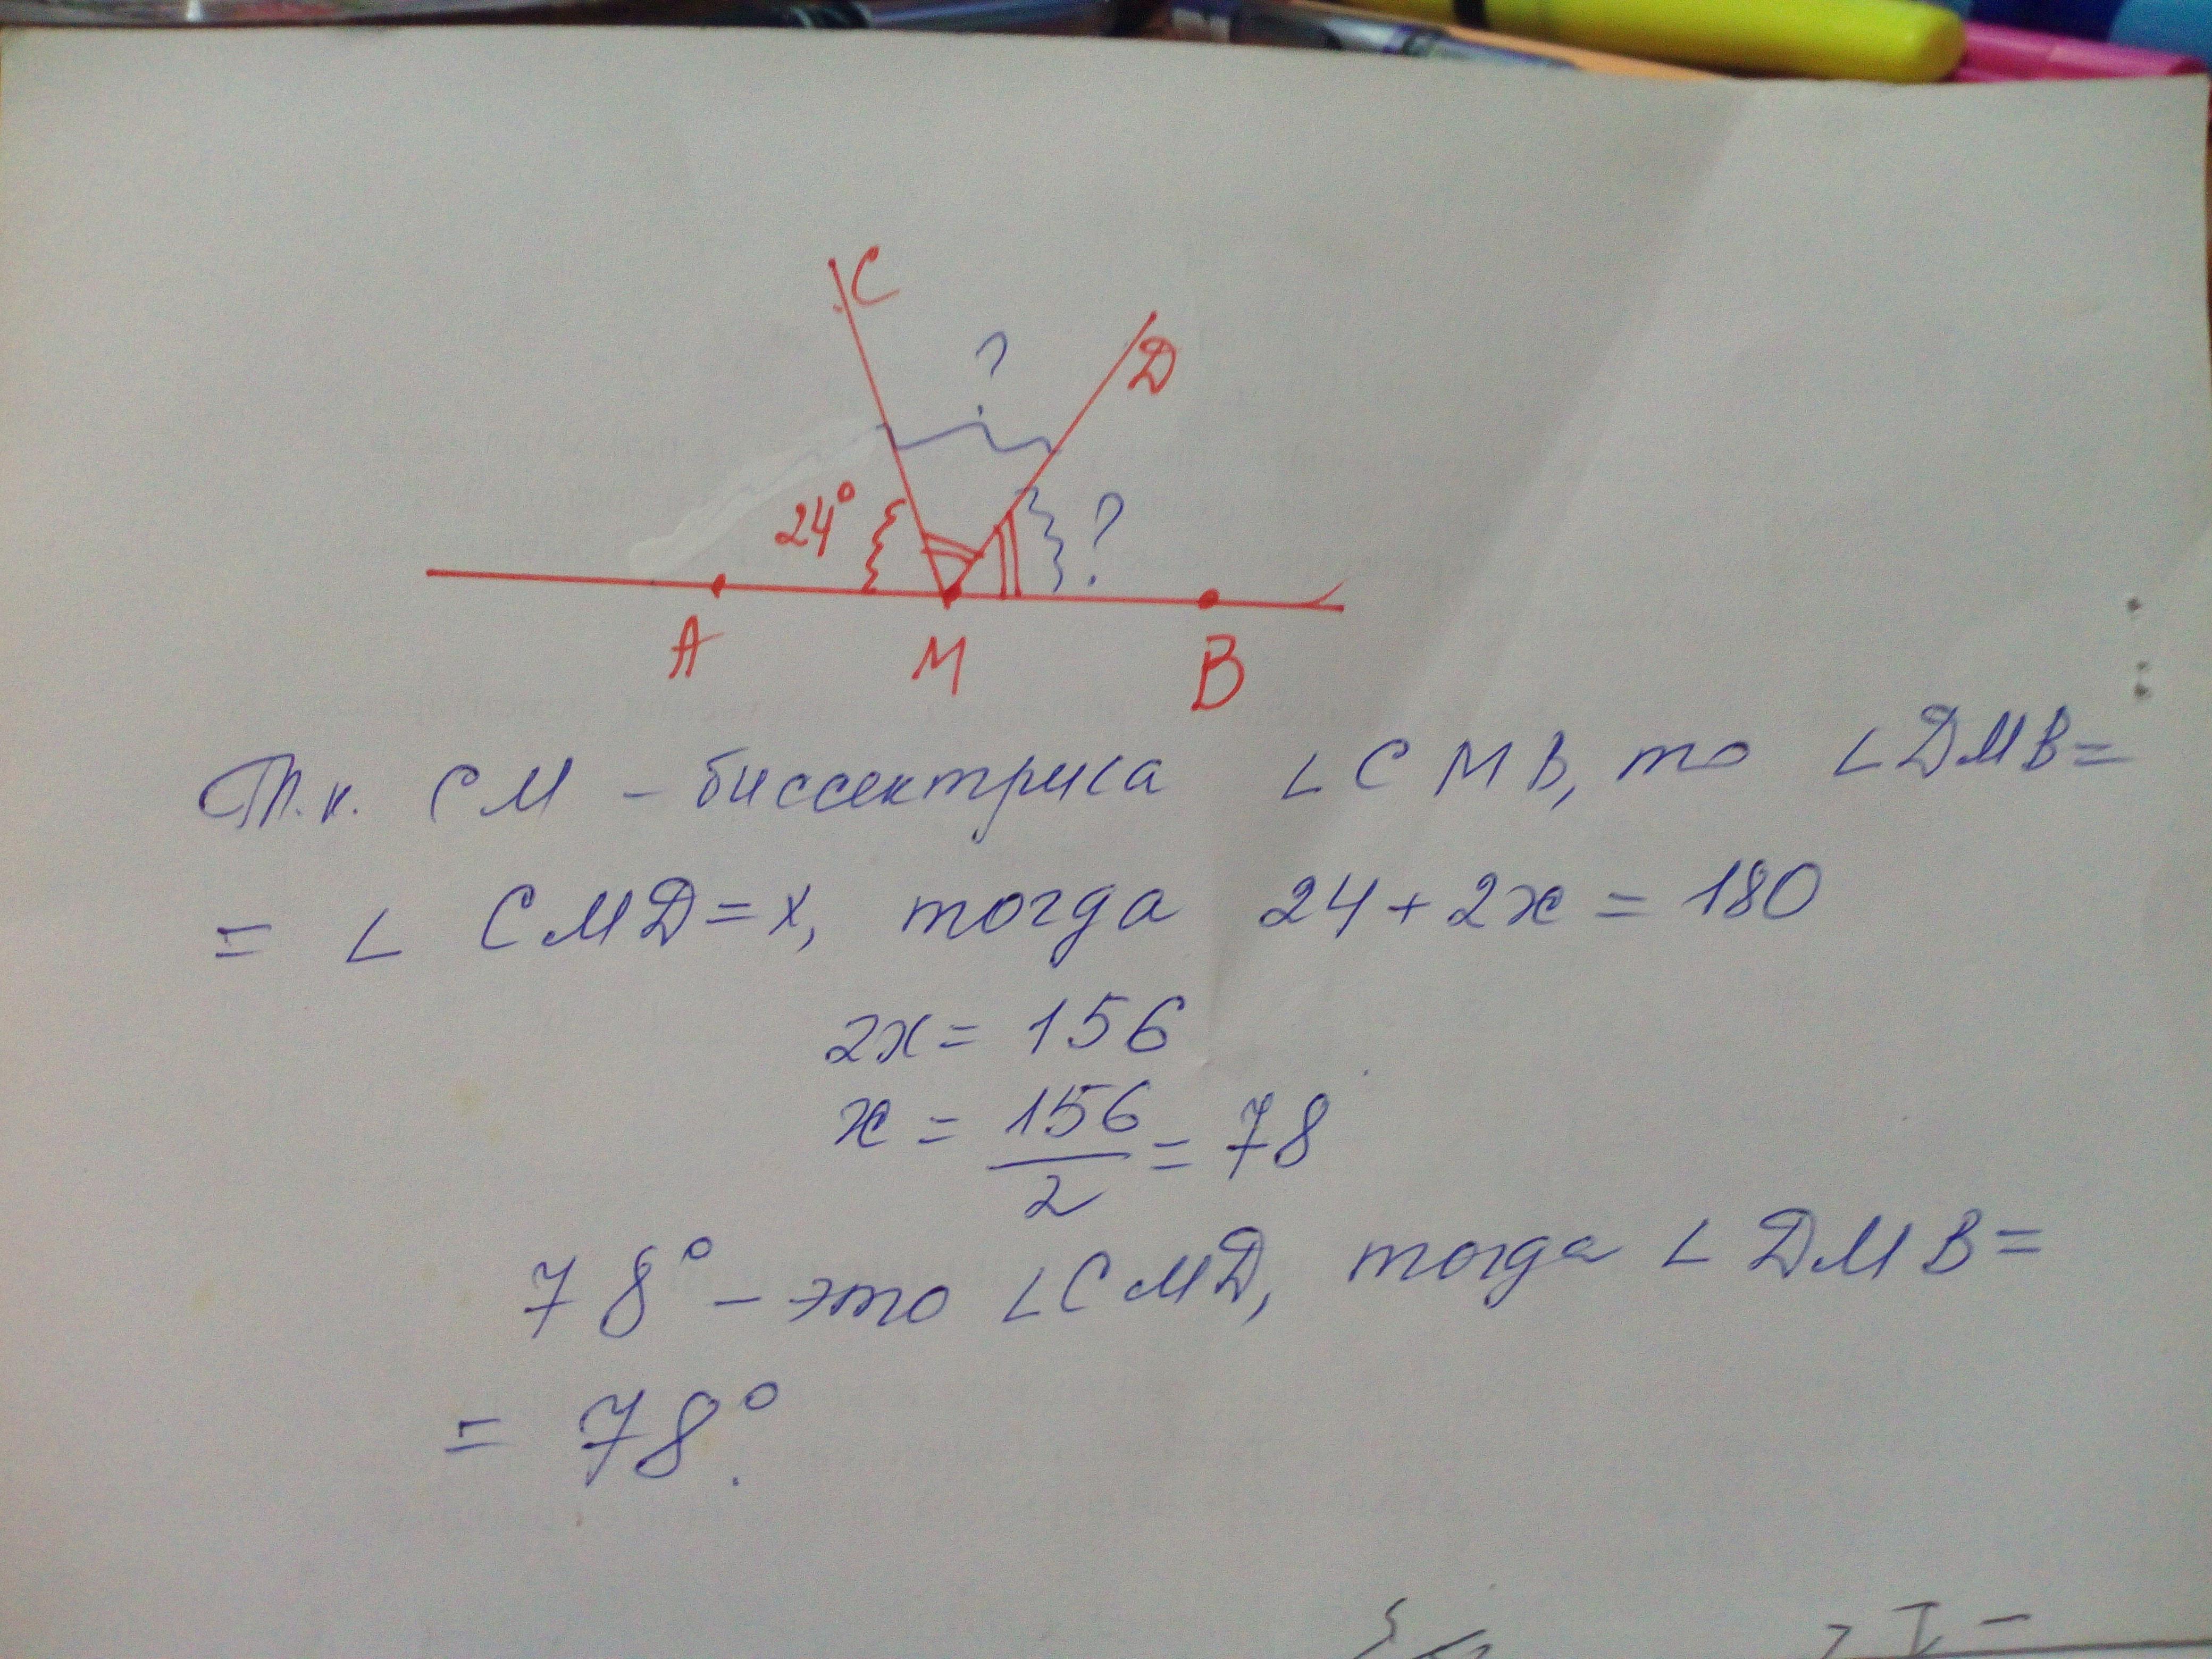 C
?
D
24°
?
A M B
Т.к. СМ – биссектриса ∠CMB, то ∠DMB=
= ∠ CMD=x, тогда 24+2x = 180
2x= 156
x = 156/2 = 78
78° – это ∠CMD, тогда ∠DMB=
= 78°.